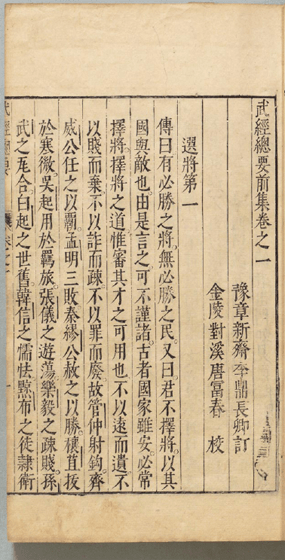 武經總要前集卷之一
豫章新齋李鼎長卿訂
金陵對溪唐富春 校
選將第一
傳曰有必勝之將無必勝之民又曰君不擇將以其
國與敵也由是言之可不謹諸古者國家雖安必常
擇將擇將之道惟審其才之可用也不以遠而遺不
以賤而棄不以詐而疎不以罪而廢故管仲射鈎齊
威公任之以霸孟明三敗秦繆公赦之以勝穰苴拔
於寒微吳起用於羈旅張儀之遊蕩樂毅之疎賤孫
武之瓦合白起之世舊韓信之懦怯黥布之徒隸衛